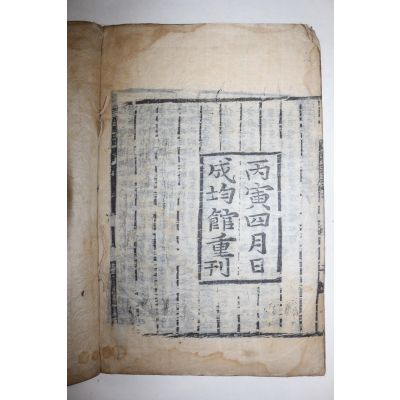 丙寅四月日
成均館重刊